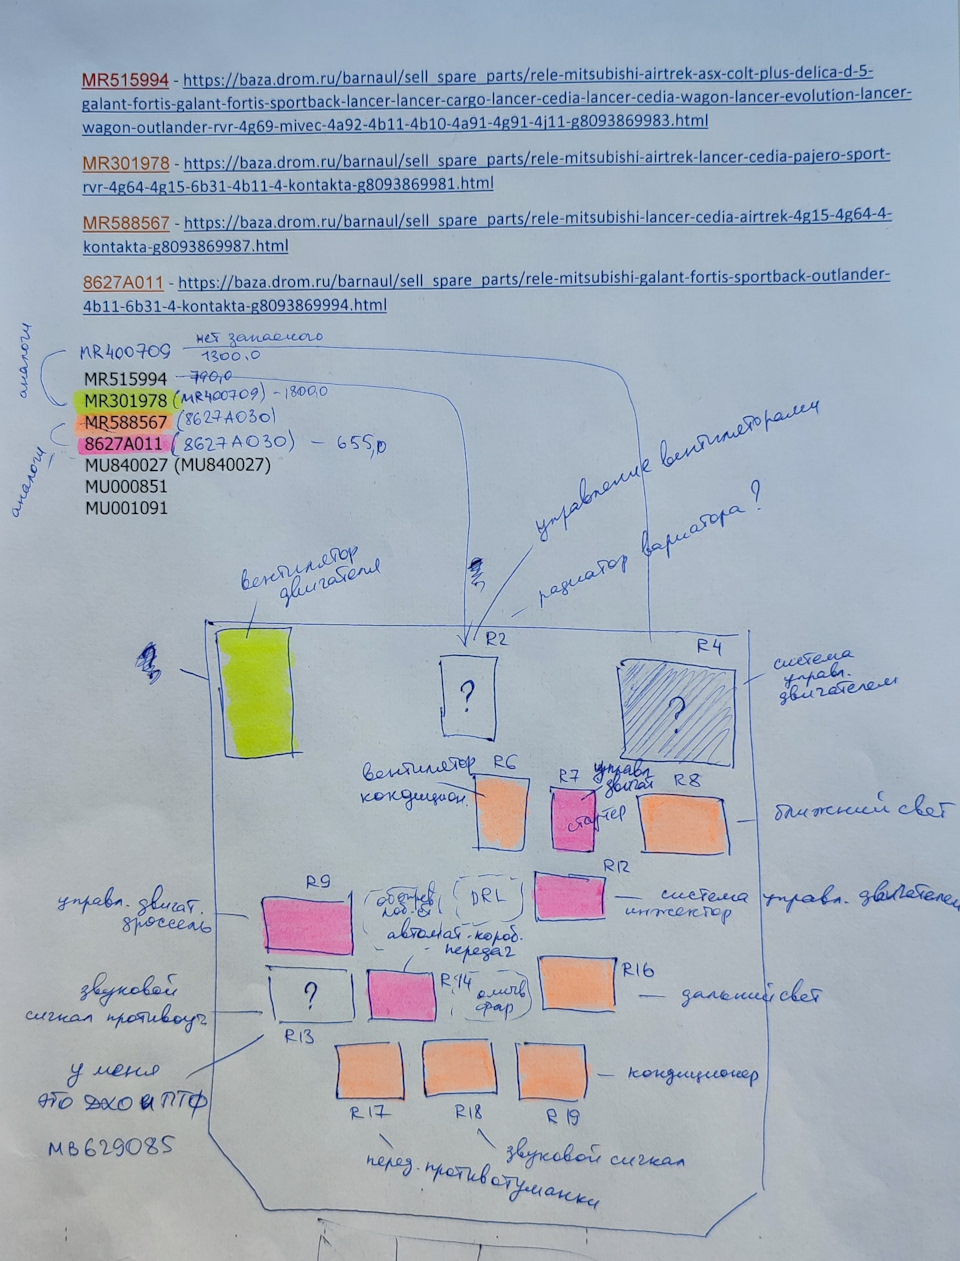 MR515994 - https://baza.drom.ru/barnaul/sell_spare_parts/rele-mitsubishi-airtrek-asx-colt-plus-delica-d-5-
galant-fortis-galant-fortis-sportback-lancer-lancer-cargo-lancer-cedia-lancer-cedia-wagon-lancer-evolution-lancer-
wagon-outlander-rvr-4g69-mivec-4a92-4b11-4b10-4a91-4g91-4j11-g8093869983.html
MR301978 - https://baza.drom.ru/barnaul/sell_spare_parts/rele-mitsubishi-airtrek-lancer-cedia-pajero-sport-
rvr-4g64-4g15-6b31-4b11-4-kontakta-g8093869981.html
MR588567 - https://baza.drom.ru/barnaul/sell_spare_parts/rele-mitsubishi-lancer-cedia-airtrek-4g15-4g64-4-
kontakta-g8093869987.html
8627A011 - https://baza.drom.ru/barnaul/sell_spare_parts/rele-mitsubishi-galant-fortis-sportback-outlander-
4b11-6b31-4-kontakta-g8093869994.html
аналоги
MR400709 нет запасного
1300,0
MR515994 - 790,0
MR301978 (MR400709) - 1800,0
MR588567 (8627A030)
8627A011 (8627A030) - 655,0
аналоги
MU840027 (MU840027)
MU000851
MU001091
управление вентиляторами
радиатор вариатора?
вентилятор
двигателя
R2
R4
?
?
система
управл.
двигателем
вентилятор
кондицион.
R6
R7
управл.
двигат
стартер
R8
ближний свет
R9
управл. двигат.
дроссель
обогрев
DRL
R12
система управл. двигателем
инжектор
автомат. короб.
передач
звуковой
сигнал противоуг
?
R13
R14
омыв
фар
R16
дальний свет
у меня
это ДХО и ПТФ
MB629085
R17
R18
R19
кондиционер
перед. противотуманки
звуковой сигнал